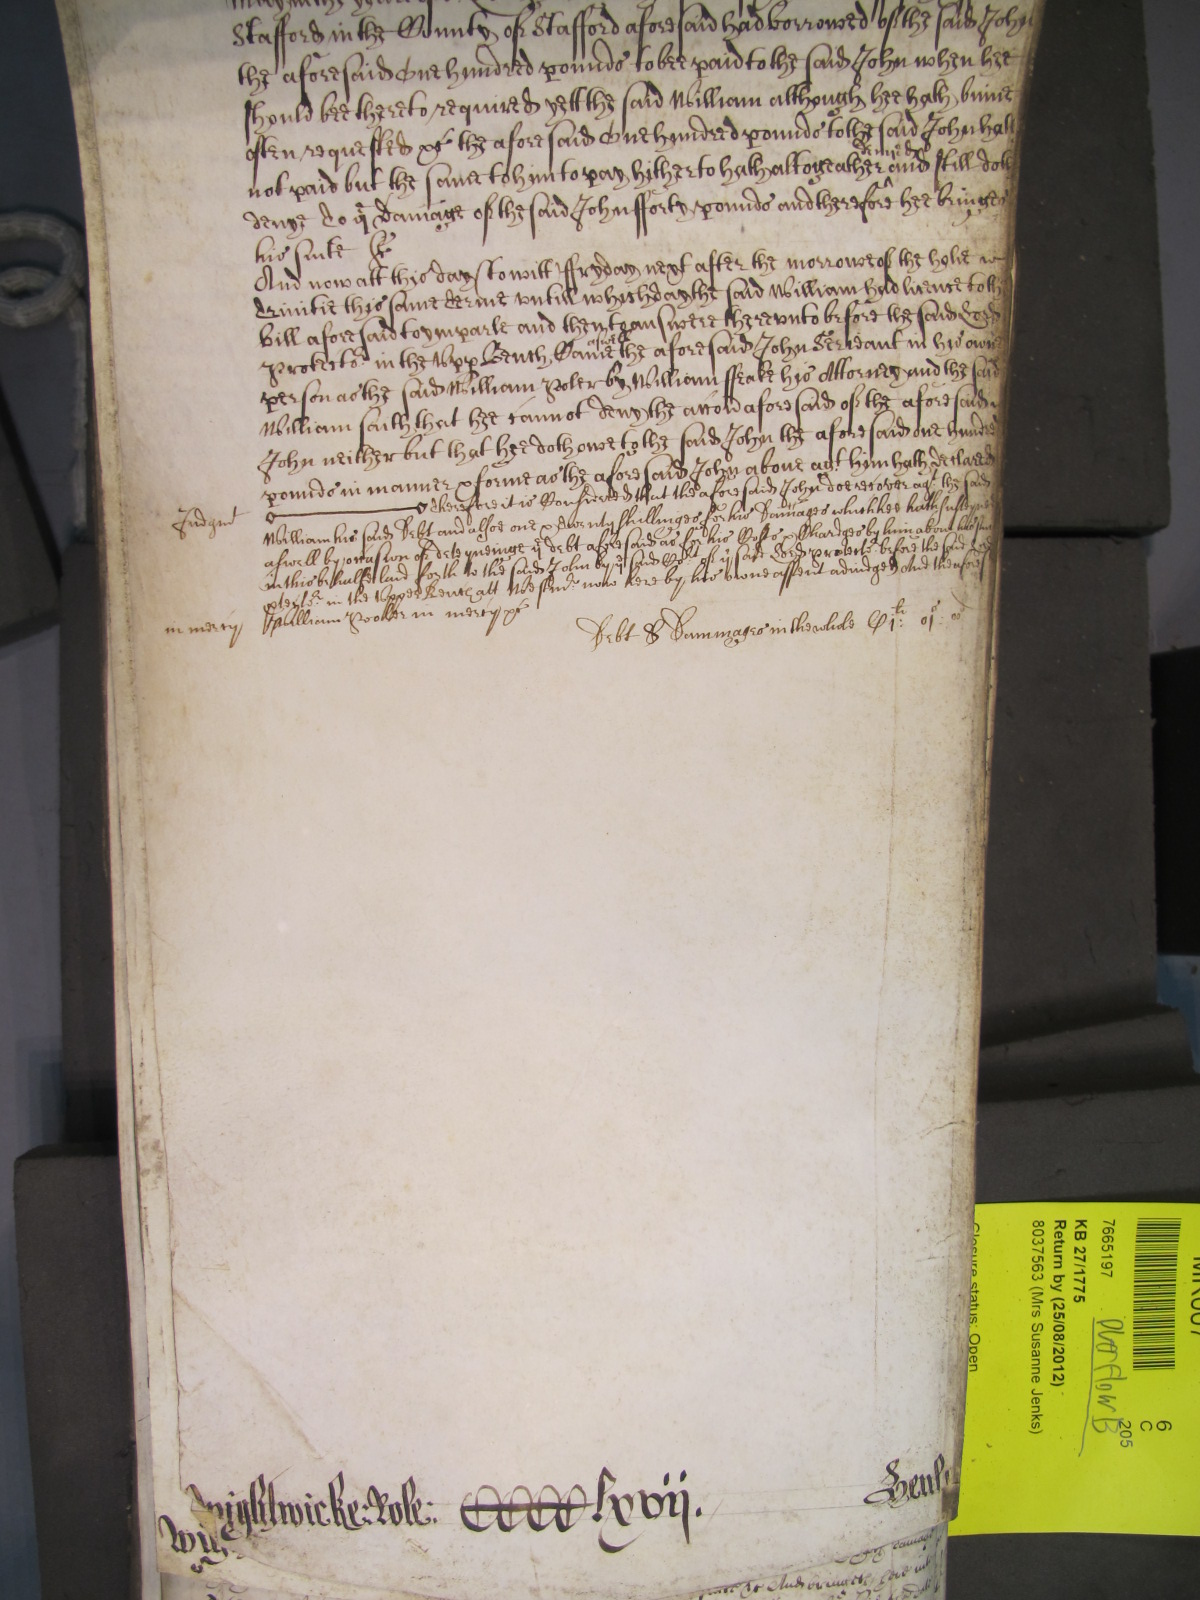 Stafford in the County of Stafford aforesaid had borrowed of the said John
the aforesaid one hundred pounds to bee paid to the said John when hee
should bee thereto required yett the said William although hee hath binne
often requested &c the aforesaid one hundred pounds to the said John hath
not paid but the same to him to pay hitherto hath altogeather denyed and still doth
denye To ye damaige of the said John fforty pounds and therefore hee bringes
his suite &c
And now att this day (to witt) ffryday next after the morrowe of the holie
Trinitie this same Terme untill which day the said William had licence to the
bill aforesaid to ymparle and then to answere thereunto before the said Lord
Protector in the Upp Bench Came aswell the aforesaid John Serieant in his owne
person as the said William Poler by William ffeake his Attorney and the said
William saith that hee cannot deny the accon aforesaid of the aforesaid
John neither but that hee doth owe to the said John the aforesaid one hundred
pounds in manner & forme as the aforesaid John above agt him hath declared
Judgmt Therefore it is Considered that the aforesaid John doe recover agt the said
William his said Debt and alsoe one & twenty shillinges for his Damages which hee hath susteyned
aswell by occasion of deteyneinge ye debt aforesaid as for his Costs & Chardges by him about his suite
in this behalfe laid forth to the said John by ye said Cort of ye said Lord Protector before the said Lord
Protector in the Upper Bench att Westmr now here by his owne assent adiudged And the aforesd
in mercy William Pooler in mercy &c
Debt & Dammages in the whole C1li: 01s: 00
Wightwicke: Role: CCCClxvij.
Wig
7665197
KB 27/1775
Return by (25/08/2012)
8037563 (Mrs Susanne Jenks)
Closure status: Open
Overflow B
205
6
C